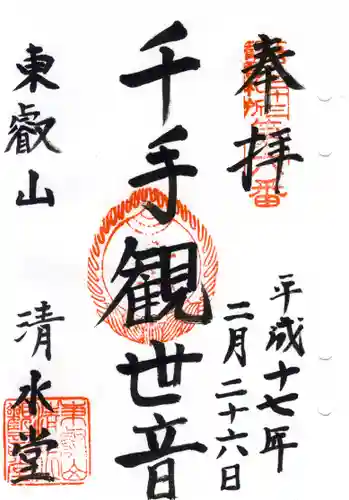 奉拝
平成十七年
二月二十六日
千手観世音
東叡山
清水堂